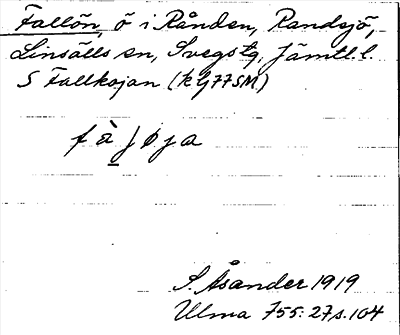 Fallön, ö i Rånden, Randsjö,
Linsälls sn, Svegs tg, Jämtl. l.
S Fallkojan (kG77SM)
f à ʃ ø j a
S. Åsander 1919
Ulma 755:27, s. 104